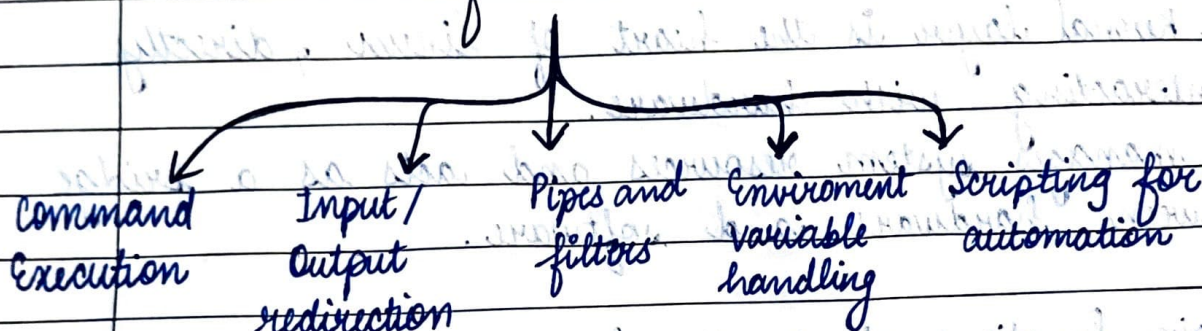 Command
Execution
Input/
Output
redirection
Pipes and
filters
Enviroment
variable
handling
Scripting for
automation